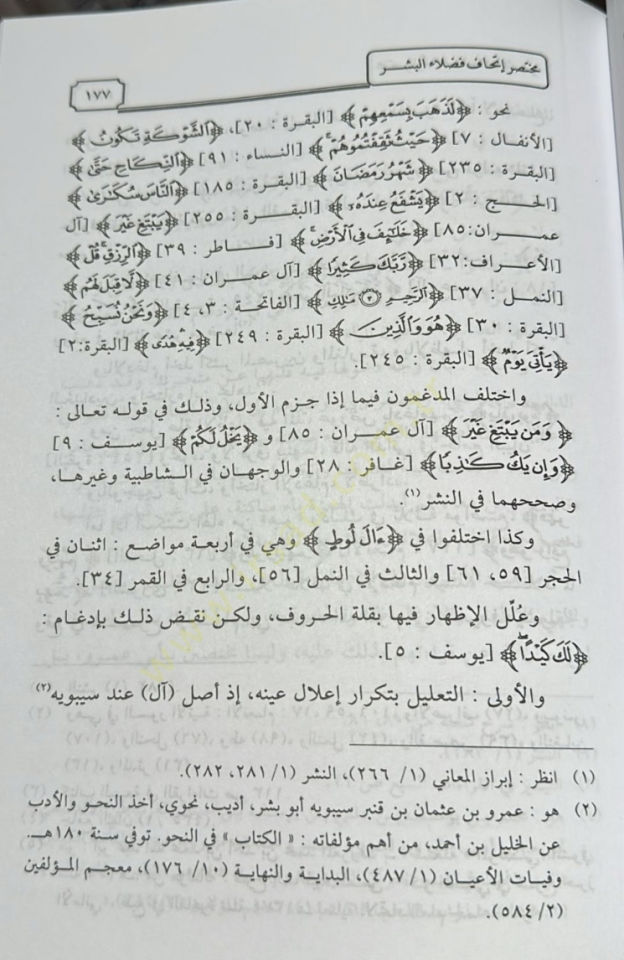 مختصر إتحاف فضلاء البشر
١٧٧
نحو : ﴿لَذَهَبَ بِسَمْعِهِمْ﴾ [البقرة : ٢٠]، ﴿الشَّوْكَةِ تَكُونُ﴾
[الأنفال : ٧] ﴿حَيْثُ ثَقِفْتُمُوهُمْ﴾ [النساء : ٩١] ﴿النِّكَاحِ حَتَّىٰ﴾
[البقرة : ٢٣٥] ﴿شَهْرُ رَمَضَانَ﴾ [البقرة : ١٨٥] ﴿النَّاسَ سُكَارَىٰ﴾
[الحج : ٢] ﴿يَشْفَعُ عِندَهُ﴾ [البقرة : ٢٥٥] ﴿يَبْتَغِ غَيْرَ﴾ [آل
عمران: ٨٥] ﴿خَلَٰٓئِفَ فِى الْأَرْضِ﴾ [فاطر : ٣٩] ﴿الرِّزْقِ قُلْ﴾
[الأعراف: ٣٢] ﴿رَّبَّكَ كَثِيرًا﴾ [آل عمران : ٤١] ﴿لَا قِبَلَ لَهُم﴾
[النمل : ٣٧] ﴿الرَّحِيمِ ٣ مَٰلِكِ﴾ [الفاتحة : ٣، ٤] ﴿وَنَحْنُ نُسَبِّحُ﴾
[البقرة : ٣٠] ﴿هُوَ وَالَّذِينَ﴾ [البقرة : ٢٤٩] ﴿فِيهِ هُدًى﴾ [البقرة: ٢]
﴿يَأْتِىَ يَوْمٌ﴾ [البقرة : ٢٤٥].
واختلف المدغمون فيما إذا جزم الأول، وذلك في قوله تعالى :
﴿وَمَن يَبْتَغِ غَيْرَ﴾ [آل عمران : ٨٥] و ﴿يَخْلُ لَكُمْ﴾ [يوسف : ٩]
﴿وَإِن يَكُ كَٰذِبًا﴾ [غافر : ٢٨] والوجهان في الشاطبية وغيرها،
وصححهما في النشر(١).
وكذا اختلفوا في ﴿ءَالَ لُوطٍ﴾ وهي في أربعة مواضع : اثنان في
الحجر [٥٩، ٦١] والثالث في النمل [٥٦]، والرابع في القمر [٣٤].
وعُلّل الإظهار فيها بقلة الحروف، ولكن نقض ذلك بإدغام :
﴿لَكَ كَيْدًا﴾ [يوسف : ٥].
والأولى : التعليل بتكرار إعلال عينه، إذ أصل (آل) عند سيبويه(٢)
(١) انظر : إبراز المعاني (١/ ٢٦٦)، النشر (١/ ٢٨١، ٢٨٢).
(٢) هو : عمرو بن عثمان بن قنبر سيبويه أبو بشر، أديب، نحوي، أخذ النحو والأدب
عن الخليل بن أحمد، من أهم مؤلفاته : «الكتاب» في النحو. توفي سنة ١٨٠هـ.
وفيات الأعيان (١/ ٤٨٧)، البداية والنهاية (١٠/ ١٧٦)، معجم المؤلفين
(٢/ ٥٨٤).